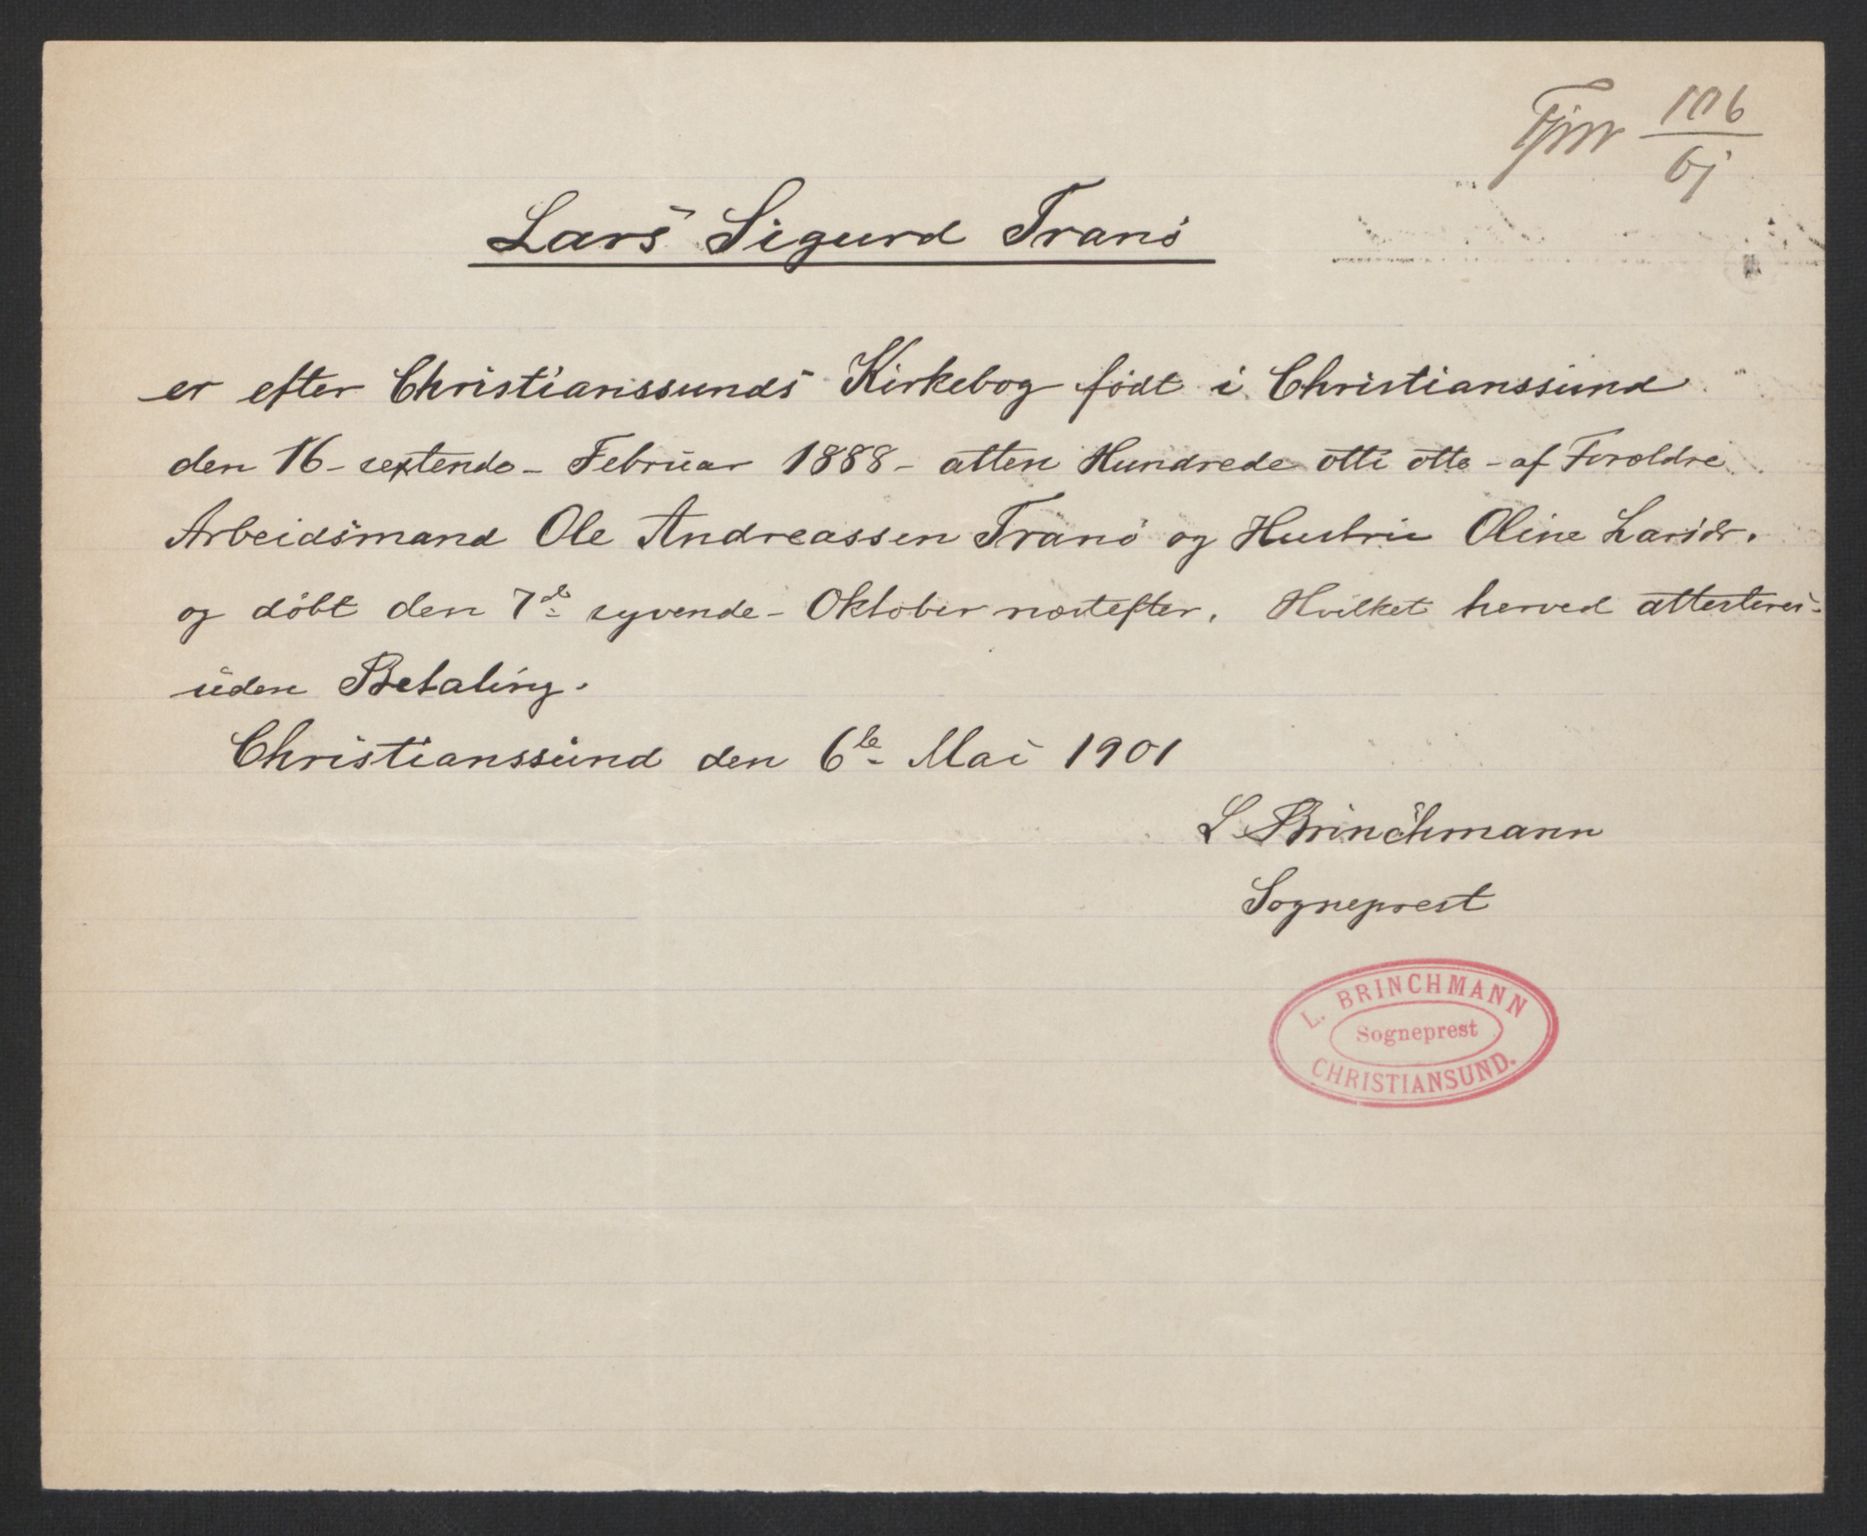 106
6j
Lars Sigurd Tranö
er efter Christianssunds Kirkebog födt i Christianssund
den 16 - sextende - Februar 1888 - atten Hundrede otti otte - af Forældre
Arbeidsmand Ole Andreassen Tranö og Hustru Oline Larsdr.
og döbt den 7de syvende - Oktober næstefter. Hvilket herved attesteres
uden Betaling.
Christianssund den 6te Mai 1901
L Brinchmann
Sogneprest
L. BRINCHMANN
Sogneprest
CHRISTIANSUND.